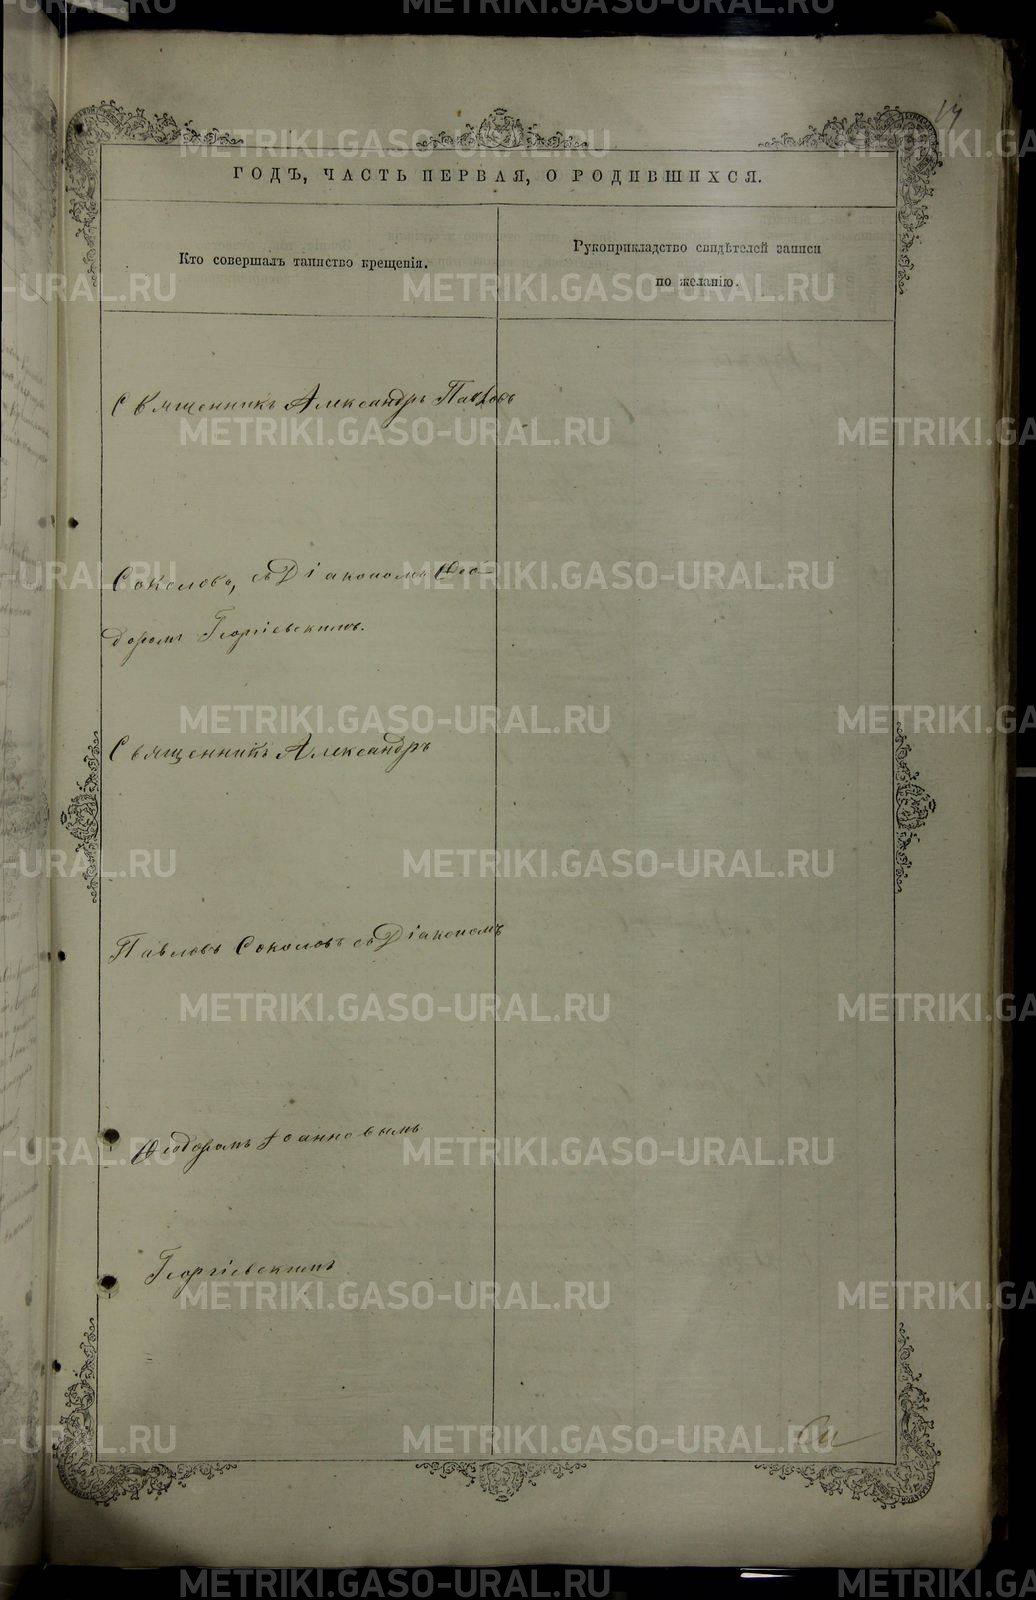 17
ГОДЪ, ЧАСТЬ ПЕРВАЯ, О РОДИВШИХСЯ.
Кто совершалъ таинство крещенія.
Рукоприкладство свидѣтелей записи
по желанію.
Священникъ Александръ Павловъ
Соколовъ, съ Діакономъ Ѳео-
доромъ Георгіевскимъ.
Священникъ Александръ
Павловъ Соколовъ съ Діакономъ
Ѳеодоромъ Іоанновымъ
Георгіевскимъ
METRIKI.GASO-URAL.RU